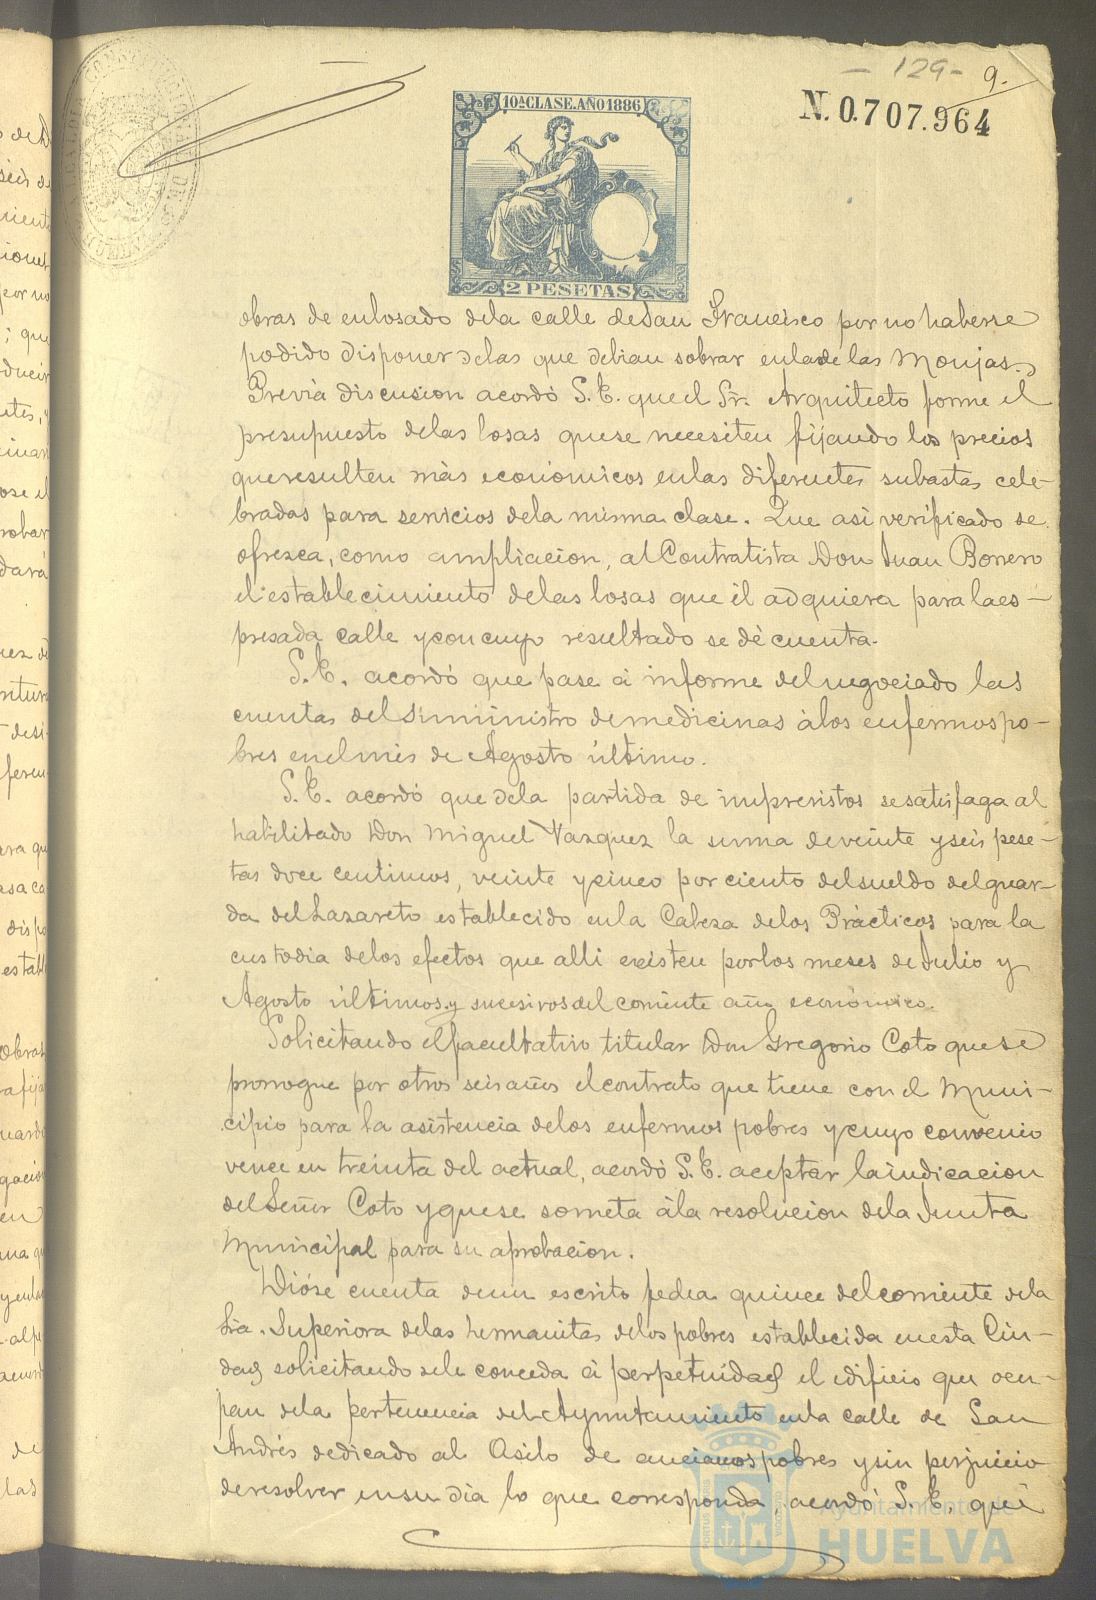 - 129 -
9.
N. 0.707.964
10ª CLASE. AÑO 1886
2 PESETAS
obras de enlosado dela calle de San Francisco por no haberse
podido disponer delas que debian sobrar enlade las Monjas.
Previa discusion acordó S.E. que el Sr. Arquitecto forme el
presupuesto delas losas quese necesiten fijando los precios
queresulten más económicos enlas diferentes subastas cele-
bradas para servicios dela misma clase. Que asi verificado se
ofrezca, como ampliacion, al Contratista Don Juan Borrero
el establecimiento delas losas que él adquiera para la es-
presada calle y con cuyo resultado se dé cuenta.
S.E. acordó que pase á informe del negociado las
cuentas del suministro de medicinas á los enfermos po-
bres en el mes de Agosto último.
S.E. acordó que dela partida de imprevistos se satisfaga al
habilitado Don Miguel Vazquez la suma de veinte y seis pese-
tas doce centimos, veinte y cinco por ciento del sueldo del guar-
da del Lazareto establecido en la Cabeza de los Prácticos para la
custodia delos efectos que alli existen por los meses de Julio y
Agosto últimos y sucesivos del corriente año económico.
Solicitando el facultativo titular Don Gregorio Coto que se
prorrogue por otros seis años el contrato que tiene con el Muni-
cipio para la asistencia delos enfermos pobres y cuyo convenio
vence en treinta del actual, acordó S.E. aceptar la indicacion
del Señor Coto y que se someta á la resolucion dela Junta
Municipal para su aprobacion.
Dióse cuenta de un escrito fecha quince del corriente dela
Sra. Superiora delas hermanitas delos pobres establecida en esta Ciu-
dad solicitando sele conceda á perpetuidad el edificio que ocu-
pan dela pertenencia del Ayuntamiento en la calle de San
Andrés dedicado al Asilo de ancianos pobres y sin perjuicio
de resolver en su dia lo que corresponda, acordó S.E. que
Ayuntamiento de
HUELVA